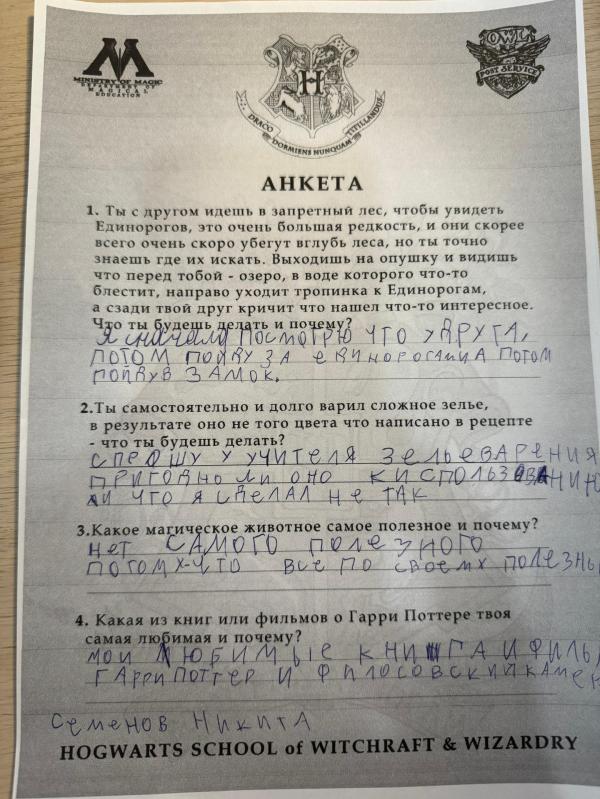 MINISTRY OF MAGIC
DEPARTMENT OF
MAGICAL
EDUCATION
H
DRACO DORMIENS NUNQUAM TITILLANDUS
OWL
POST SERVICE
АНКЕТА
1. Ты с другом идешь в запретный лес, чтобы увидеть
Единорогов, это очень большая редкость, и они скорее
всего очень скоро убегут вглубь леса, но ты точно
знаешь где их искать. Выходишь на опушку и видишь
что перед тобой - озеро, в воде которого что-то
блестит, направо уходит тропинка к Единорогам,
а сзади твой друг кричит что нашел что-то интересное.
Что ты будешь делать и почему?
Я сначала посмотрю что у друга,
потом пойду за единорогами а потом
пойду в замок.
2.Ты самостоятельно и долго варил сложное зелье,
в результате оно не того цвета что написано в рецепте
- что ты будешь делать?
спрошу у учителя зельеварения
пригодно ли оно к использованию
ли что я сделал не так
3.Какое магическое животное самое полезное и почему?
нет самого полезного
потому-что все по своему полезны
4. Какая из книг или фильмов о Гарри Поттере твоя
самая любимая и почему?
мои любимые книга и филь
Гарри Поттер и филосовский камен
Семенов Никита
HOGWARTS SCHOOL of WITCHRAFT & WIZARDRY